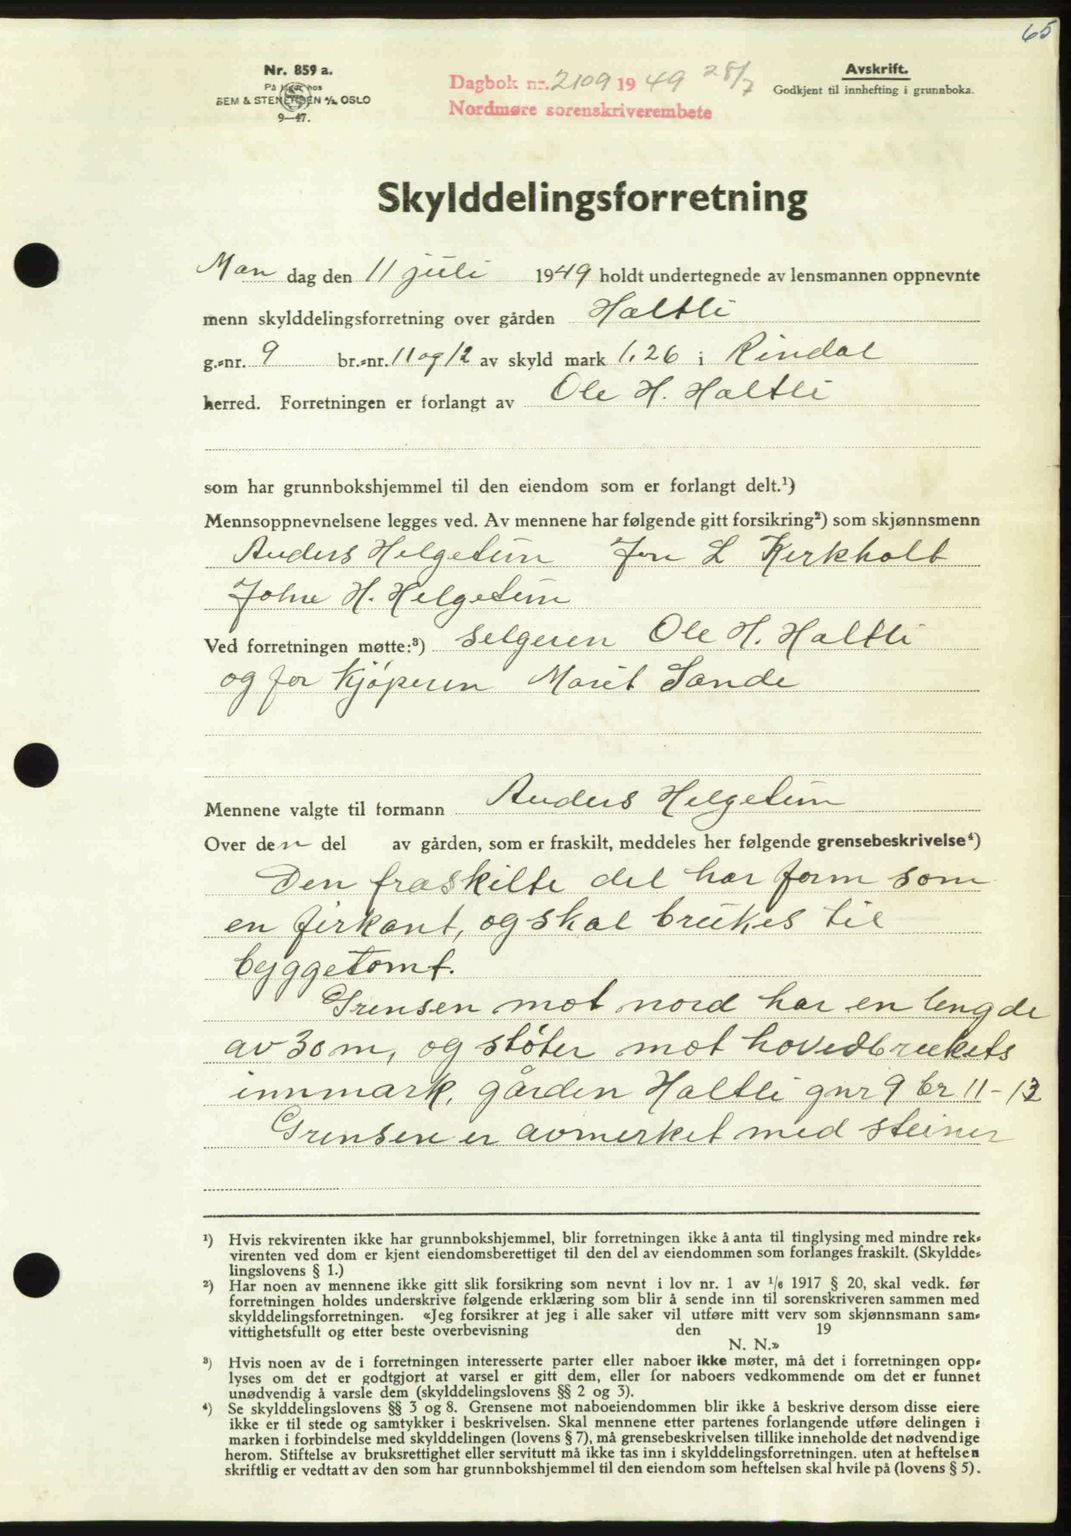 65
Nr. 859 a.
På lager hos
SEM & STENERSEN A/S OSLO
9—47.
Dagbok nr. 2109 1949 28/7
Nordmøre sorenskriverembete
Avskrift.
Godkjent til innhefting i grunnboka.
Skylddelingsforretning
Man dag den 11 juli 1949 holdt undertegnede av lensmannen oppnevnte
menn skylddelingsforretning over gården Haltli
g.-nr. 9 br.-nr. 11 og 12 av skyld mark 1,26 i Rindal
herred. Forretningen er forlangt av Ole H. Haltli
som har grunnbokshjemmel til den eiendom som er forlangt delt.¹)
Mennsoppnevnelsene legges ved. Av mennene har følgende gitt forsikring²) som skjønnsmenn
Anders Helgetun Jon L Kirkholt
John H. Helgetun
Ved forretningen møtte:³) selgeren Ole H. Haltli
og for kjøperen Marit Sande
Mennene valgte til formann Anders Helgetun
Over den del av gården, som er fraskilt, meddeles her følgende grensebeskrivelse⁴)
Den fraskilte del har form som
en firkant, og skal brukes til
byggetomt.
Grensen mot nord har en lengde
av 30 m, og støter mot hovedbrukets
innmark, gården Haltli gnr 9 br 11-12
Grensen er avmerket med steiner
¹) Hvis rekvirenten ikke har grunnbokshjemmel, blir forretningen ikke å anta til tinglysing med mindre rek-
virenten ved dom er kjent eiendomsberettiget til den del av eiendommen som forlanges fraskilt. (Skyldde-
lingslovens § 1.)
²) Har noen av mennene ikke gitt slik forsikring som nevnt i lov nr. 1 av 1/6 1917 § 20, skal vedk. før
forretningen holdes underskrive følgende erklæring som blir å sende inn til sorenskriveren sammen med
skylddelingsforretningen. «Jeg forsikrer at jeg i alle saker vil utføre mitt verv som skjønnsmann sam-
vittighetsfullt og etter beste overbevisning den 19
N. N.»
³) Hvis noen av de i forretningen interesserte parter eller naboer ikke møter, må det i forretningen opp-
lyses om det er godtgjort at varsel er gitt dem, eller for naboers vedkommende om det er funnet
unødvendig å varsle dem (skylddelingslovens §§ 2 og 3).
⁴) Se skylddelingslovens §§ 3 og 8. Grensene mot naboeiendommen blir ikke å beskrive dersom disse eiere
ikke er til stede og samtykker i beskrivelsen. Skal mennene etter partenes forlangende utføre delingen i
marken i forbindelse med skylddelingen (lovens § 7), må grensebeskrivelsen tillike inneholde det nødvendige
herom. Stiftelse av bruksrettighet eller servitutt må ikke tas inn i skylddelingsforretningen. uten at heftelsen
skriftlig er vedtatt av den som har grunnbokshjemmel til den eiendom som heftelsen skal hvile på (lovens § 5).